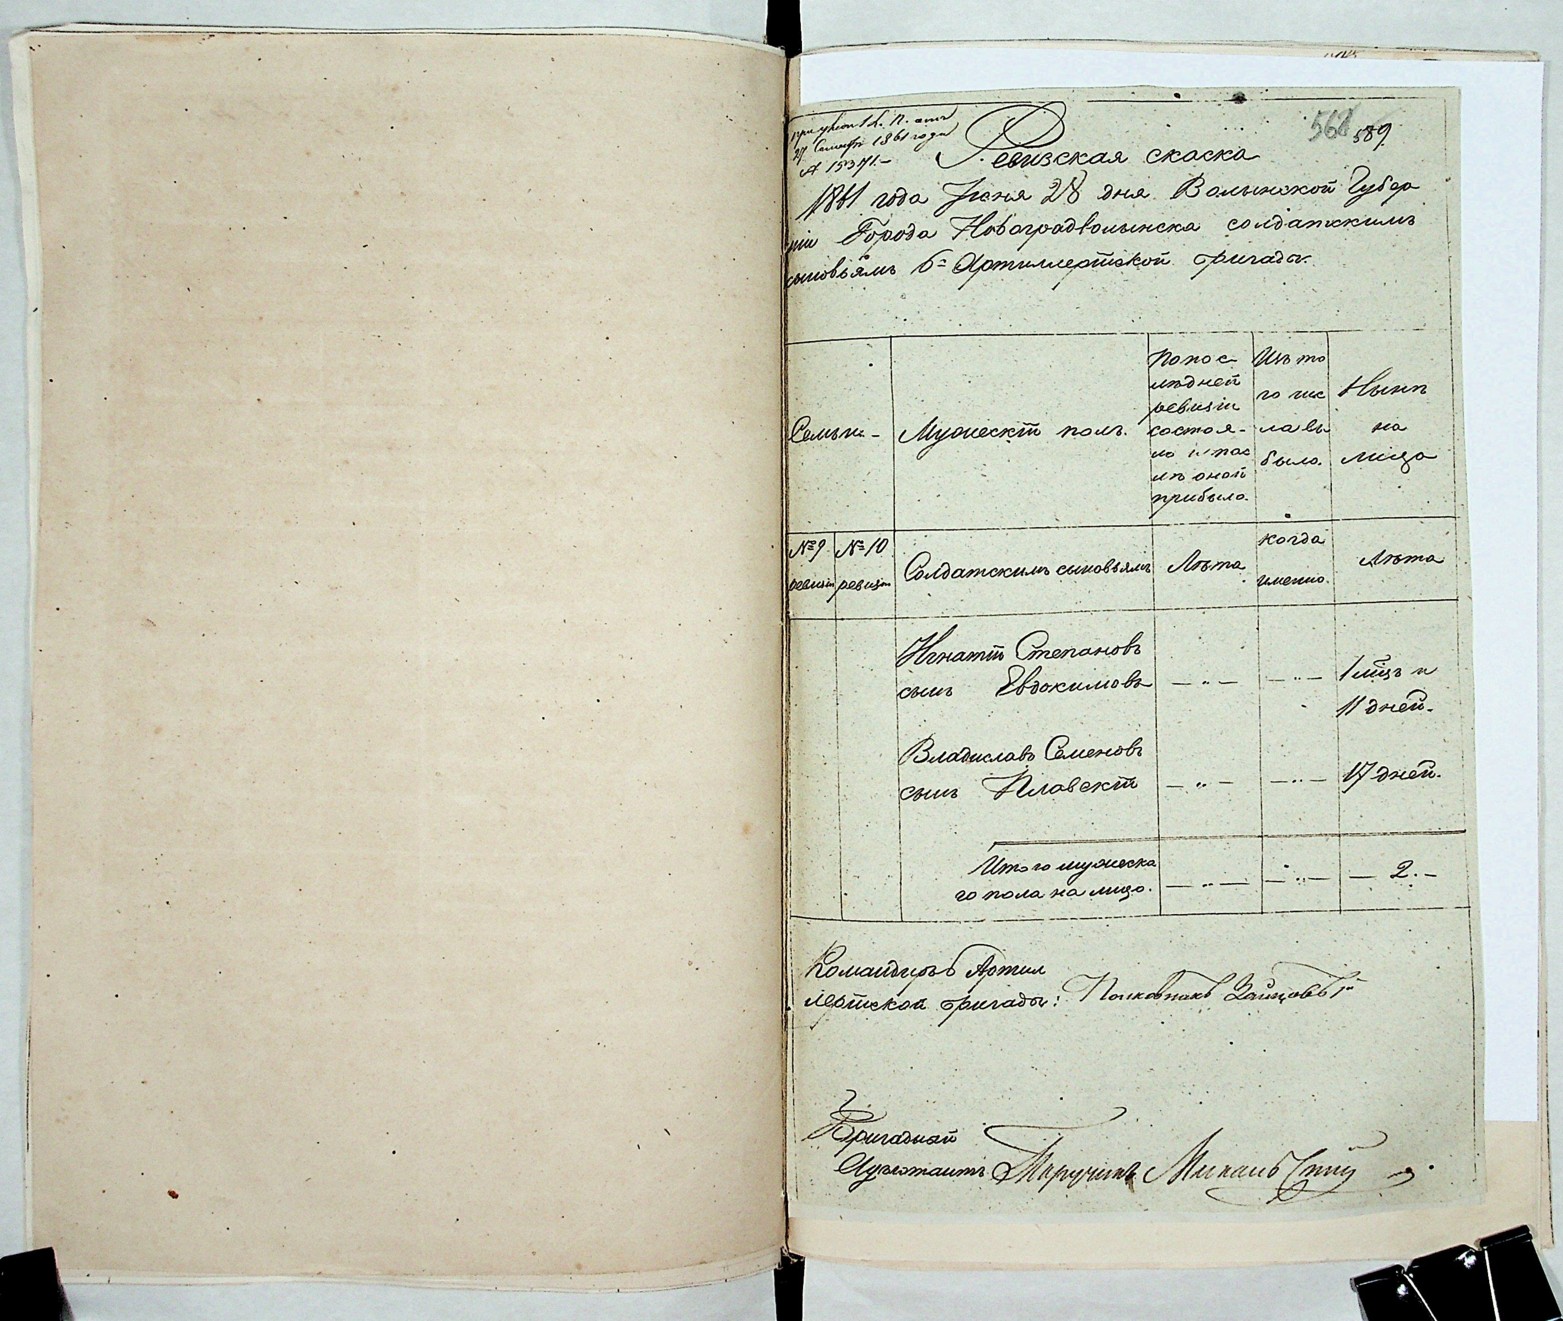 568 589.
27 Сентяб 1861 года
№ 15371.-
Ревизская скаска
1861 года Іюня 28 дня Волынской Губер
ніи Города Новоградволынска солдатскимъ
сыновьямъ 6й Артиллерійской бригады.
Семьи-
Мужескій полъ.
По по с-
лѣдней
ревизіи
состоя-
ло и пос
лѣ оной
прибыло.
Изъ то
го чис
ла вы
было.
Нынѣ
на
лицо
№ 9 ревизіи
№ 10 ревизіи
Солдатскимъ сыновьямъ
Лѣта
когда
имянно.
Лѣта
Игнатій Степановъ
сынъ Евдокимовъ — „ — — „ — 1 мцъ и
11 дней.
Владиславъ Семеновъ
сынъ Плавскій — „ — — „ — 17 дней.
Итого мужеска
го пола на лицо. — „ — — „ — — 2. —
Командиръ 6 Артил
лерійской бригады: Полковникъ Зайцовъ 1й
Бригадный
Адъютантъ Поручикъ